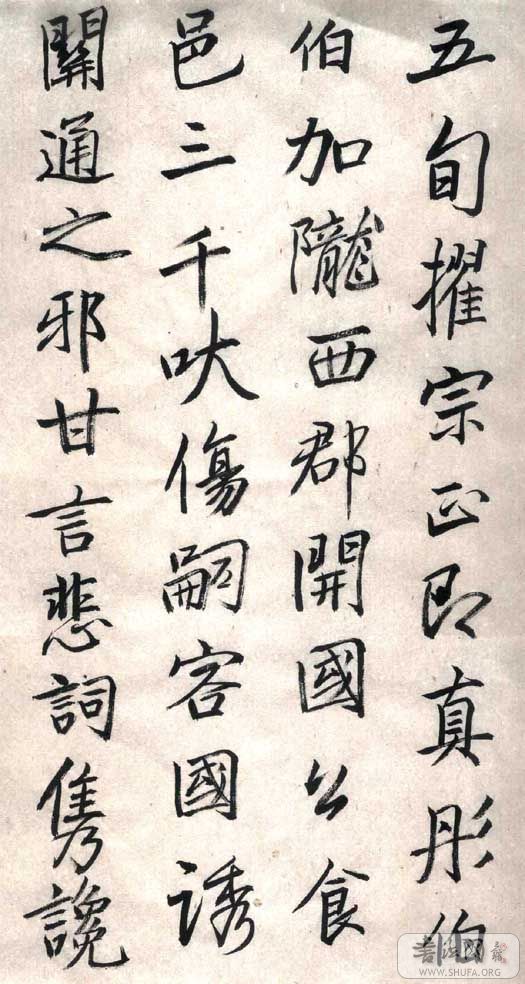 五旬擢宗正即真彤伯
伯加隴西郡開國公食
邑三千吠傷嗣客國誘
關通之邪甘言悲詞雋讒
WWW.SHUFA.ORG